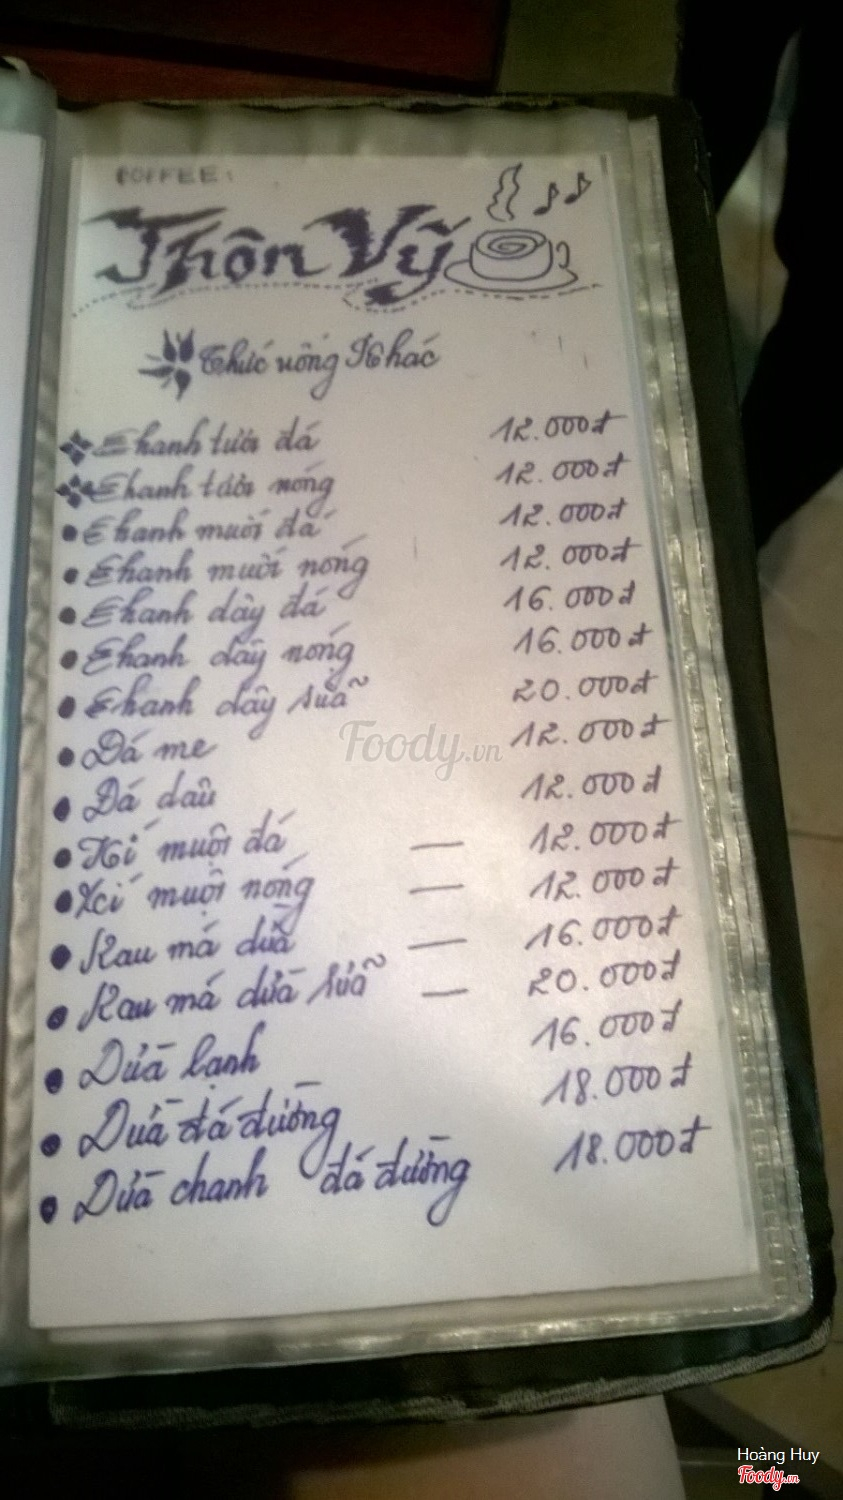 COFFEE:
Thôn Vỹ
Thức uống Khác
Chanh tươi đá 12.000đ
Chanh tươi nóng 12.000đ
Chanh muối đá 12.000đ
Chanh muối nóng 12.000đ
Chanh dây đá 16.000đ
Chanh dây nóng 16.000đ
Chanh dây sữa 20.000đ
Đá me 12.000đ
Đá dâu 12.000đ
Xí muội đá — 12.000đ
Xí muội nóng — 12.000đ
Rau má dừa — 16.000đ
Rau má dừa sữa — 20.000đ
Dừa lạnh 16.000đ
Dừa đá đường 18.000đ
Dừa chanh đá đường 18.000đ
Foody.vn
Hoàng Huy
Foody.vn